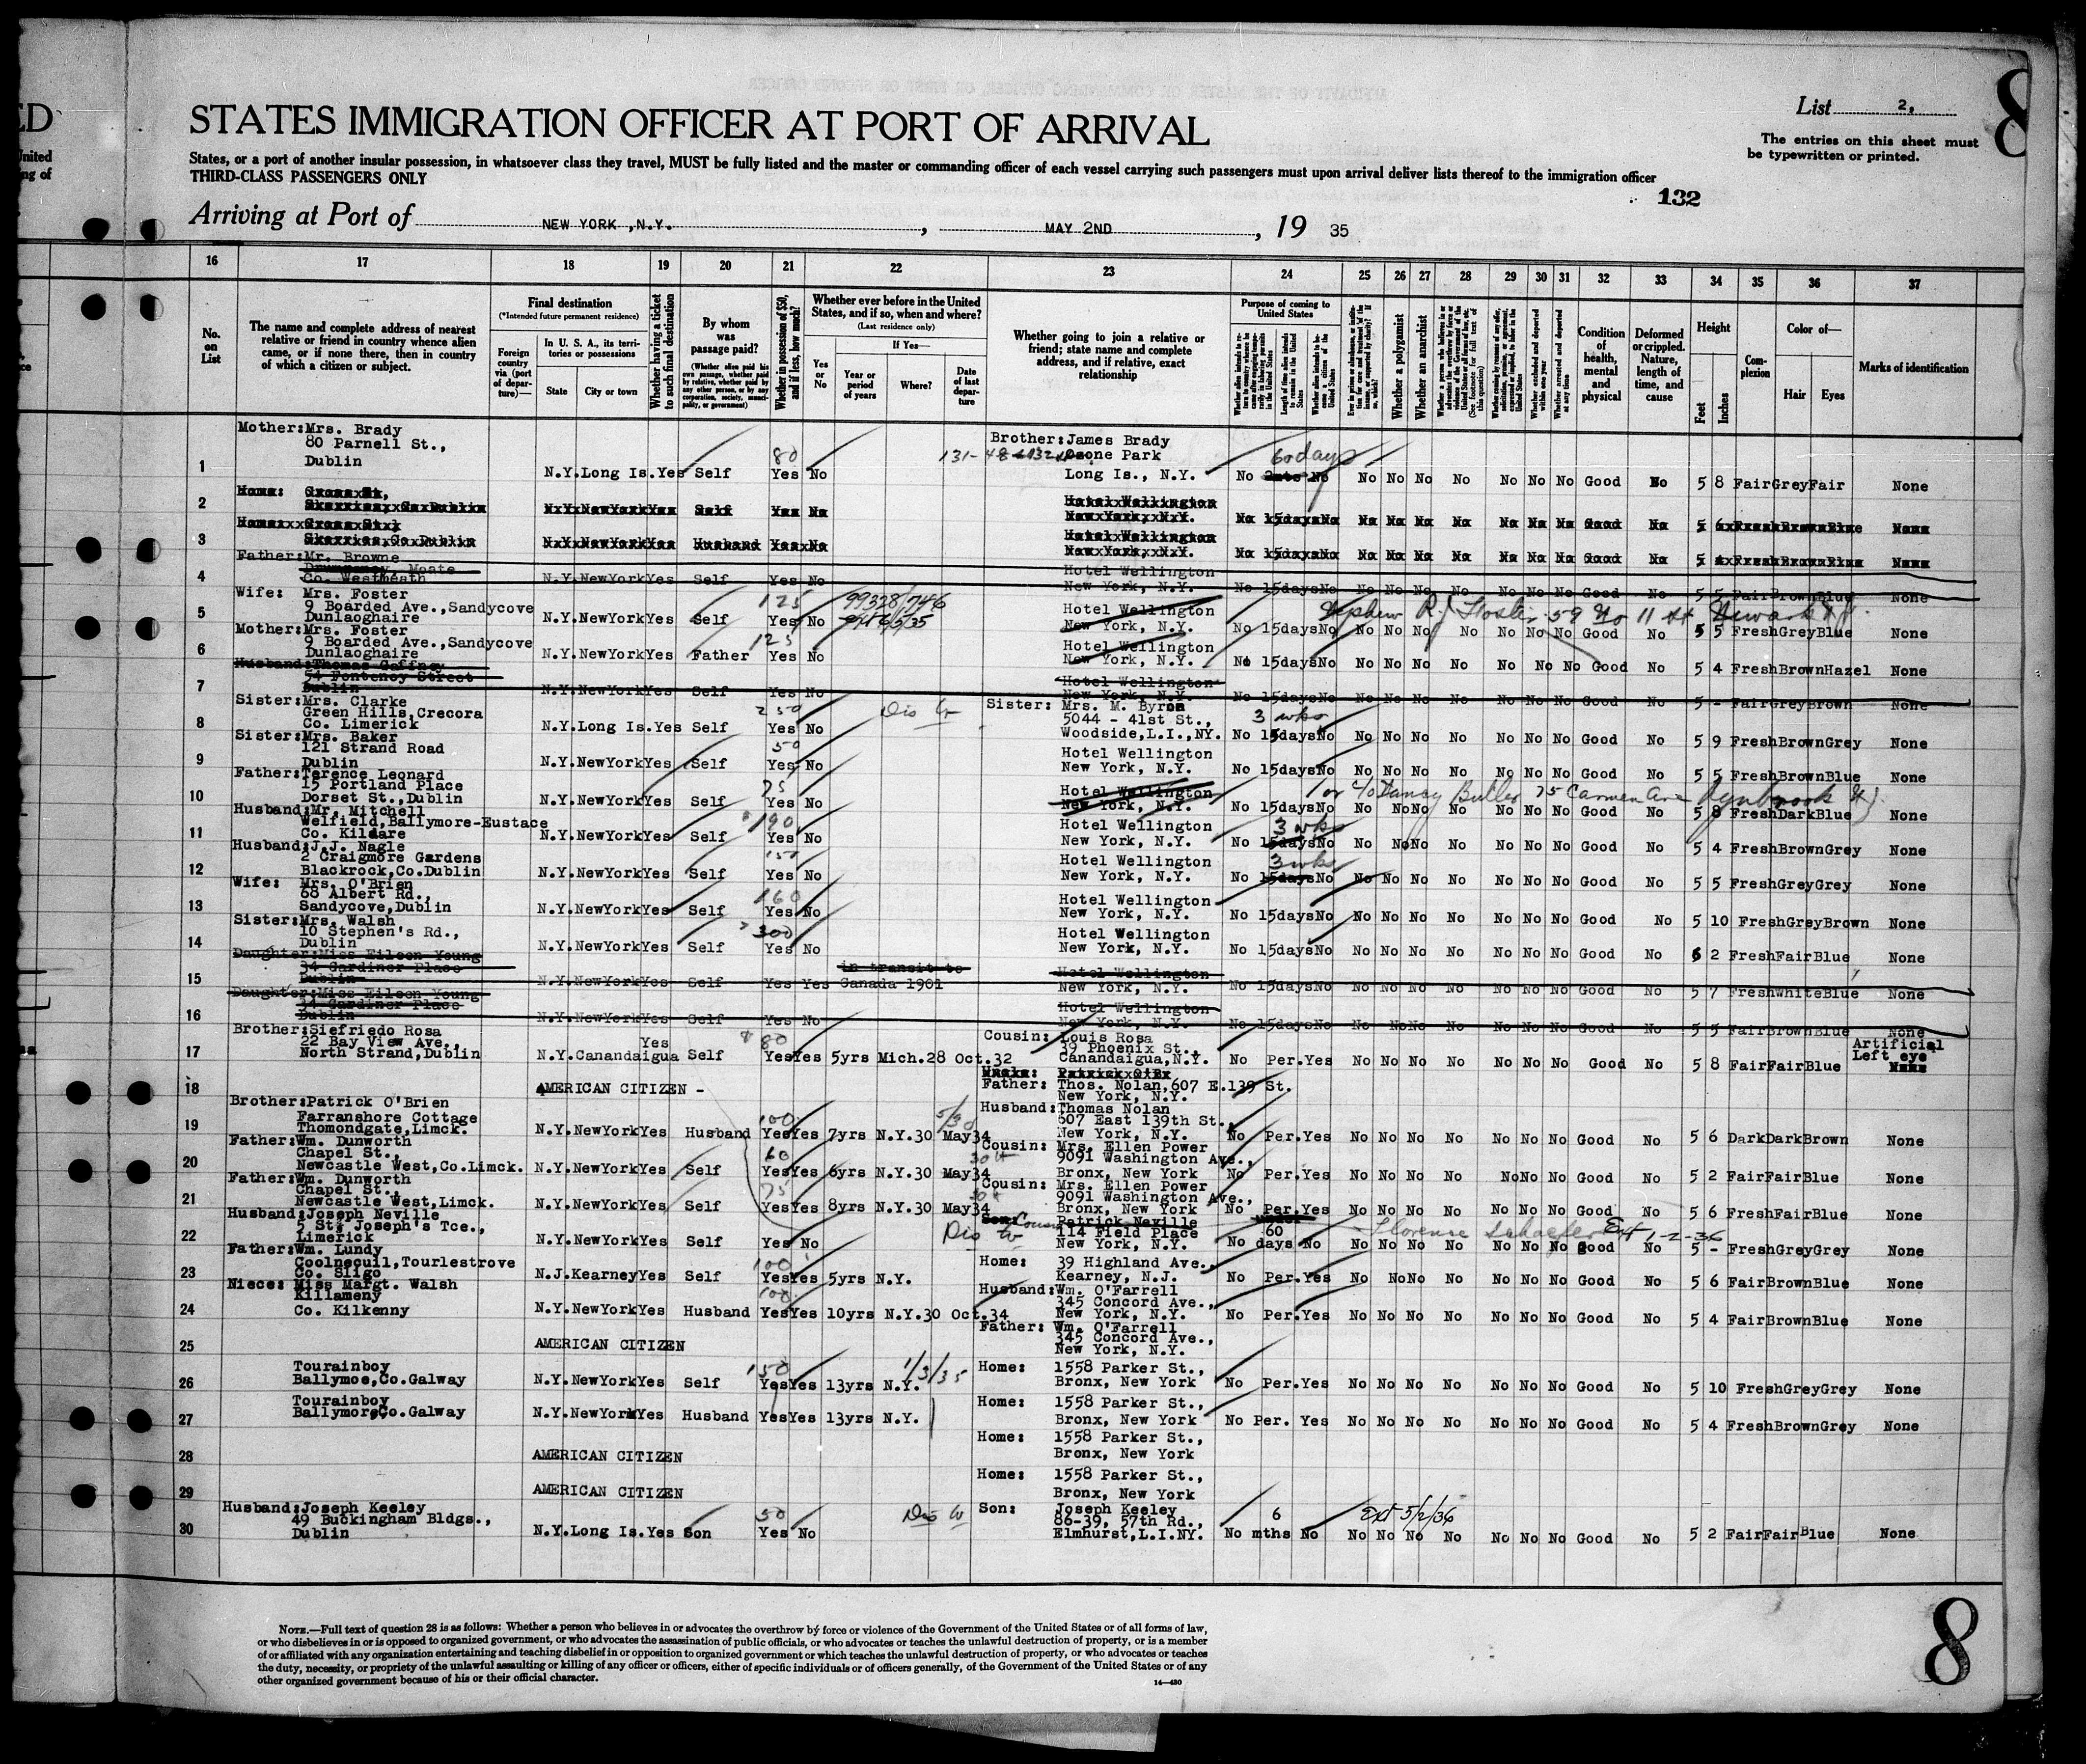 ED
United
ing of
STATES IMMIGRATION OFFICER AT PORT OF ARRIVAL
List 2,
8
The entries on this sheet must
be typewritten or printed.
States, or a port of another insular possession, in whatsoever class they travel, MUST be fully listed and the master or commanding officer of each vessel carrying such passengers must upon arrival deliver lists thereof to the immigration officer
THIRD-CLASS PASSENGERS ONLY
132
Arriving at Port of NEW YORK ,N.Y. , MAY 2ND , 19 35
16 17 18 19 20 21 22 23 24 25 26 27 28 29 30 31 32 33 34 35 36 37
No. on List
The name and complete address of nearest relative or friend in country whence alien came, or if none there, then in country of which a citizen or subject.
Final destination
(*Intended future permanent residence)
Foreign country via (port of departure)—
In U. S. A., its territories or possessions
State City or town
Whether having a ticket to such final destination
By whom was passage paid?
(Whether alien paid his own passage, whether paid by relative, whether paid by any other person, or by any corporation, society, municipality, or government)
Whether in possession of $50, and if less, how much?
Whether ever before in the United States, and if so, when and where?
(Last residence only)
Yes or No
If Yes—
Year or period of years
Where?
Date of last departure
Whether going to join a relative or friend; state name and complete address, and if relative, exact relationship
Purpose of coming to United States
Length of time alien intends to remain in the United States
Whether alien intends to become a citizen of the United States
Whether a polygamist
Whether an anarchist
Whether excluded and deported within one year
Whether arrested and deported at any time
Condition of health, mental and physical
Deformed or crippled. Nature, length of time, and cause
Height
Feet Inches
Complexion
Color of—
Hair Eyes
Marks of identification
Mother:Mrs. Brady Brother:James Brady
80 Parnell St., 80 Ozone Park 60 days
1 Dublin N.Y.Long Is.Yes Self Yes No Long Is., N.Y. No No No No No No No No No Good No 5 8 FairGreyFair None
2 Home: Hotel Wellington
N.Y.NewYorkYes Self Yes No New York, N.Y. No 15daysNo No No No No No No No Good No
3 Hotel Wellington
N.Y.NewYorkYes Husband Yes No New York, N.Y. No 15daysNo No No No No No No No Good No
Father:Mr. Browne
Moate Hotel Wellington
4 Co. Westmeath N.Y.NewYorkYes Self Yes No New York, N.Y. No 15daysNo No No No No No No No Good No 5 5 FairBrownBlue None
Wife: Mrs. Foster 125 99328/746
9 Boarded Ave.,Sandycove Hotel Wellington Nephew R.J Foster 59 No 11 St Newark N.J.
5 Dunlaoghaire N.Y.NewYorkYes Self Yes No New York, N.Y. No 15daysNo No No No No No No No Good No 5 5 FreshGreyBlue None
Mother:Mrs. Foster 125
9 Boarded Ave.,Sandycove Hotel Wellington
6 Dunlaoghaire N.Y.NewYorkYes Father Yes No New York, N.Y. No 15daysNo No No No No No No No Good No 5 4 FreshBrownHazel None
Husband:Thomas Gaffney
54 Fontenoy Street Hotel Wellington
7 Dublin N.Y.NewYorkYes Self Yes No New York, N.Y. No 15daysNo No No No No No No No Good No 5 - FairGreyBrown None
Sister:Mrs. Clarke 250 Sister: Mrs. M. Byron
Green Hills,Crecora 5044 - 41st St., 3 wks
8 Co. Limerick N.Y.Long Is.Yes Self Yes No Woodside,L.I.,NY. No 15daysNo No No No No No No No Good No 5 9 FreshBrownGrey None
Sister:Mrs. Baker 50
121 Strand Road Hotel Wellington
9 Dublin N.Y.NewYorkYes Self Yes No New York, N.Y. No 15daysNo No No No No No No No Good No 5 5 FreshBrownBlue None
Father:Terence Leonard 75
15 Portland Place Hotel Wellington 75 Carmen Ave Lynbrook
10 Dorset St.,Dublin N.Y.NewYorkYes Self Yes No New York, N.Y. No 15daysNo No NoNo No No No No Good No 5 8 FreshDarkBlue None
Husband:Mr. Mitchell 190
Welfield,Ballymore-Eustace Hotel Wellington 3 wks
11 Co. Kildare N.Y.NewYorkYes Self Yes No New York, N.Y. No 15daysNo No NoNo No No No No Good No 5 4 FreshBrownGrey None
Husband:J.J. Nagle 150
2 Craigmore Gardens Hotel Wellington 3 wks
12 Blackrock,Co.Dublin N.Y.NewYorkYes Self Yes No New York, N.Y. No 15daysNo No No No No No No No Good No 5 5 FreshGreyGrey None
Wife: Mrs. O'Brien 160
68 Albert Rd., Hotel Wellington
13 Sandycove,Dublin N.Y.NewYorkYes Self Yes No New York, N.Y. No 15daysNo No No No No No No No Good No 5 10 FreshGreyBrown None
Sister:Mrs. Walsh 300
10 Stephen's Rd., Hotel Wellington
14 Dublin N.Y.NewYorkYes Self Yes No New York, N.Y. No 15daysNo No No No No No No No Good No 6 2 FreshFairBlue None
Daughter:Miss Eileen Young
34 Gardiner Place in transit to Hotel Wellington
15 Dublin N.Y.NewYorkYes Self Yes Yes Canada 1901 New York, N.Y. No 15daysNo No No No No No No No Good No 5 7 FreshWhiteBlue None
Daughter:Miss Eileen Young
34 Gardiner Place Hotel Wellington
16 Dublin N.Y.NewYorkYes Self Yes No New York, N.Y. No 15daysNo No NoNo No No No No Good No 5 5 FairBrownBlue None
Brother:Siefriedo Rosa 80 Cousin: Louis Rosa
22 Bay View Ave., Yes 39 Phoenix St., Artificial
17 North Strand,Dublin N.Y.Canandaigua Self YesYes 5yrs Mich.28 Oct.32 Canandaigua,N.Y. No Per.Yes No No No No No No No Good No 5 8 FairFairBlue Left eye
18 AMERICAN CITIZEN - Father: Thos. Nolan,607 E.139 St.
New York, N.Y.
Brother:Patrick O'Brien Husband:Thomas Nolan
Farranshore Cottage 100 607 East 139th St.,
19 Thomondgate,Limck. N.Y.NewYorkYes Husband YesYes 7yrs N.Y.30 May34 New York, N.Y. No Per.Yes No No No No No No No Good No 5 6 DarkDarkBrown None
Father:Wm. Dunworth Cousin: Mrs. Ellen Power
Chapel St., 60 9091 Washington Ave.,
20 Newcastle West,Co.Limck. N.Y.NewYorkYes Self YesYes 6yrs N.Y.30 May34 Bronx, New York No Per.Yes No No No No NoNo No Good No 5 2 FairFairBlue None
Father:Wm. Dunworth Cousin: Mrs. Ellen Power
Chapel St., 75 9091 Washington Ave.,
21 Newcastle West,Limck. N.Y.NewYorkYes Self YesYes 8yrs N.Y.30 May34 Bronx, New York No Per.Yes No No No No No No No Good No 5 6 FreshFairBlue None
Husband:Joseph Neville Son: Cousin Patrick Neville
5 St. Joseph's Tce., 114 Field Place 60 Florence Schaefer Ext 1-2-36
22 Limerick N.Y.NewYorkYes Self Yes No New York, N.Y. No days No No No No No No No No Good No 5 - FreshGreyGrey None
Father:Wm. Lundy
Coolnecuil,Tourlestrove 100 Home: 39 Highland Ave.,
23 Co. Sligo N.J.KearneyYes Self YesYes 5yrs N.Y. Kearney, N.J. No Per.Yes No NoNo No No No No Good No 5 6 FairBrownBlue None
Niece: Miss Margt. Walsh Husband:Wm. O'Farrell
Killameny 100 345 Concord Ave.,
24 Co. Kilkenny N.Y.NewYorkYes Husband YesYes 10yrs N.Y.30 Oct.34 New York, N.Y. No Per.Yes No No No No No No No Good No 5 4 FairBrownBlue None
Father: Wm. O'Farrell
345 Concord Ave.,
25 AMERICAN CITIZEN New York, N.Y.
Tourainboy 150 1/3/35 Home: 1558 Parker St.,
26 Ballymoe,Co.Galway N.Y.NewYorkYes Self YesYes 13yrs N.Y. Bronx, New York No Per.Yes No No No No No No No Good No 5 10 FreshGreyGrey None
Tourainboy Home: 1558 Parker St.,
27 Ballymore,Co.Galway N.Y.NewYorkYes Husband YesYes 13yrs N.Y. Bronx, New York No Per. Yes No No No No No No No Good No 5 4 FreshBrownGrey None
Home: 1558 Parker St.,
28 AMERICAN CITIZEN Bronx, New York
Home: 1558 Parker St.,
29 AMERICAN CITIZEN Bronx, New York
Husband:Joseph Keeley Son: Joseph Keeley
49 Buckingham Bldgs., 50 86-39, 57th Rd., 6 Ext 5/2/36
30 Dublin N.Y.Long Is.Yes Son Yes No Elmhurst,L.I.NY. No mths No No No No No No No No Good No 5 2 FairFairBlue None
NOTE.—Full text of question 28 is as follows: Whether a person who believes in or advocates the overthrow by force or violence of the Government of the United States or of all forms of law,
or who disbelieves in or is opposed to organized government, or who advocates the assassination of public officials, or who advocates or teaches the unlawful destruction of property, or is a member
of or affiliated with any organization entertaining and teaching disbelief in or opposition to organized government or which teaches the unlawful destruction of property, or who advocates or teaches
the duty, necessity, or propriety of the unlawful assaulting or killing of any officer or officers, either of specific individuals or of officers generally, of the Government of the United States or of any
other organized government because of his or their official character.
14—430
8